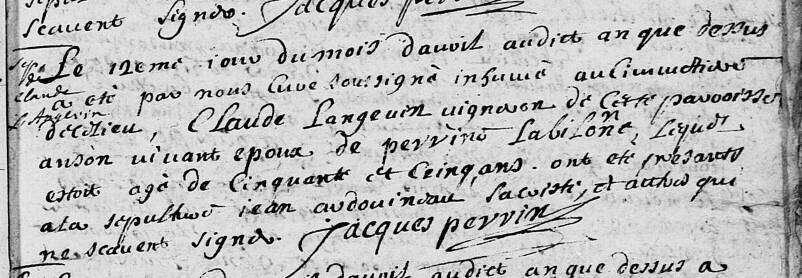 scavent signer. Jacques perrin
Le 12eme iour du mois davril audict an que dessus
a eté par nous Curé soussigné inhumé au Cimmetiere
Claude
Langevin
de ce lieu, Claude Langevin vigneron de Cette parroisse
anson vivant epoux de perrine Labilone, Lequel
estoit agé de Cinquante et Cinq ans. ont eté presants
ala sepulture iean ardouineau, sacriste, et autres qui
ne scavent signer. Jacques perrin
davril audict an que dessus a